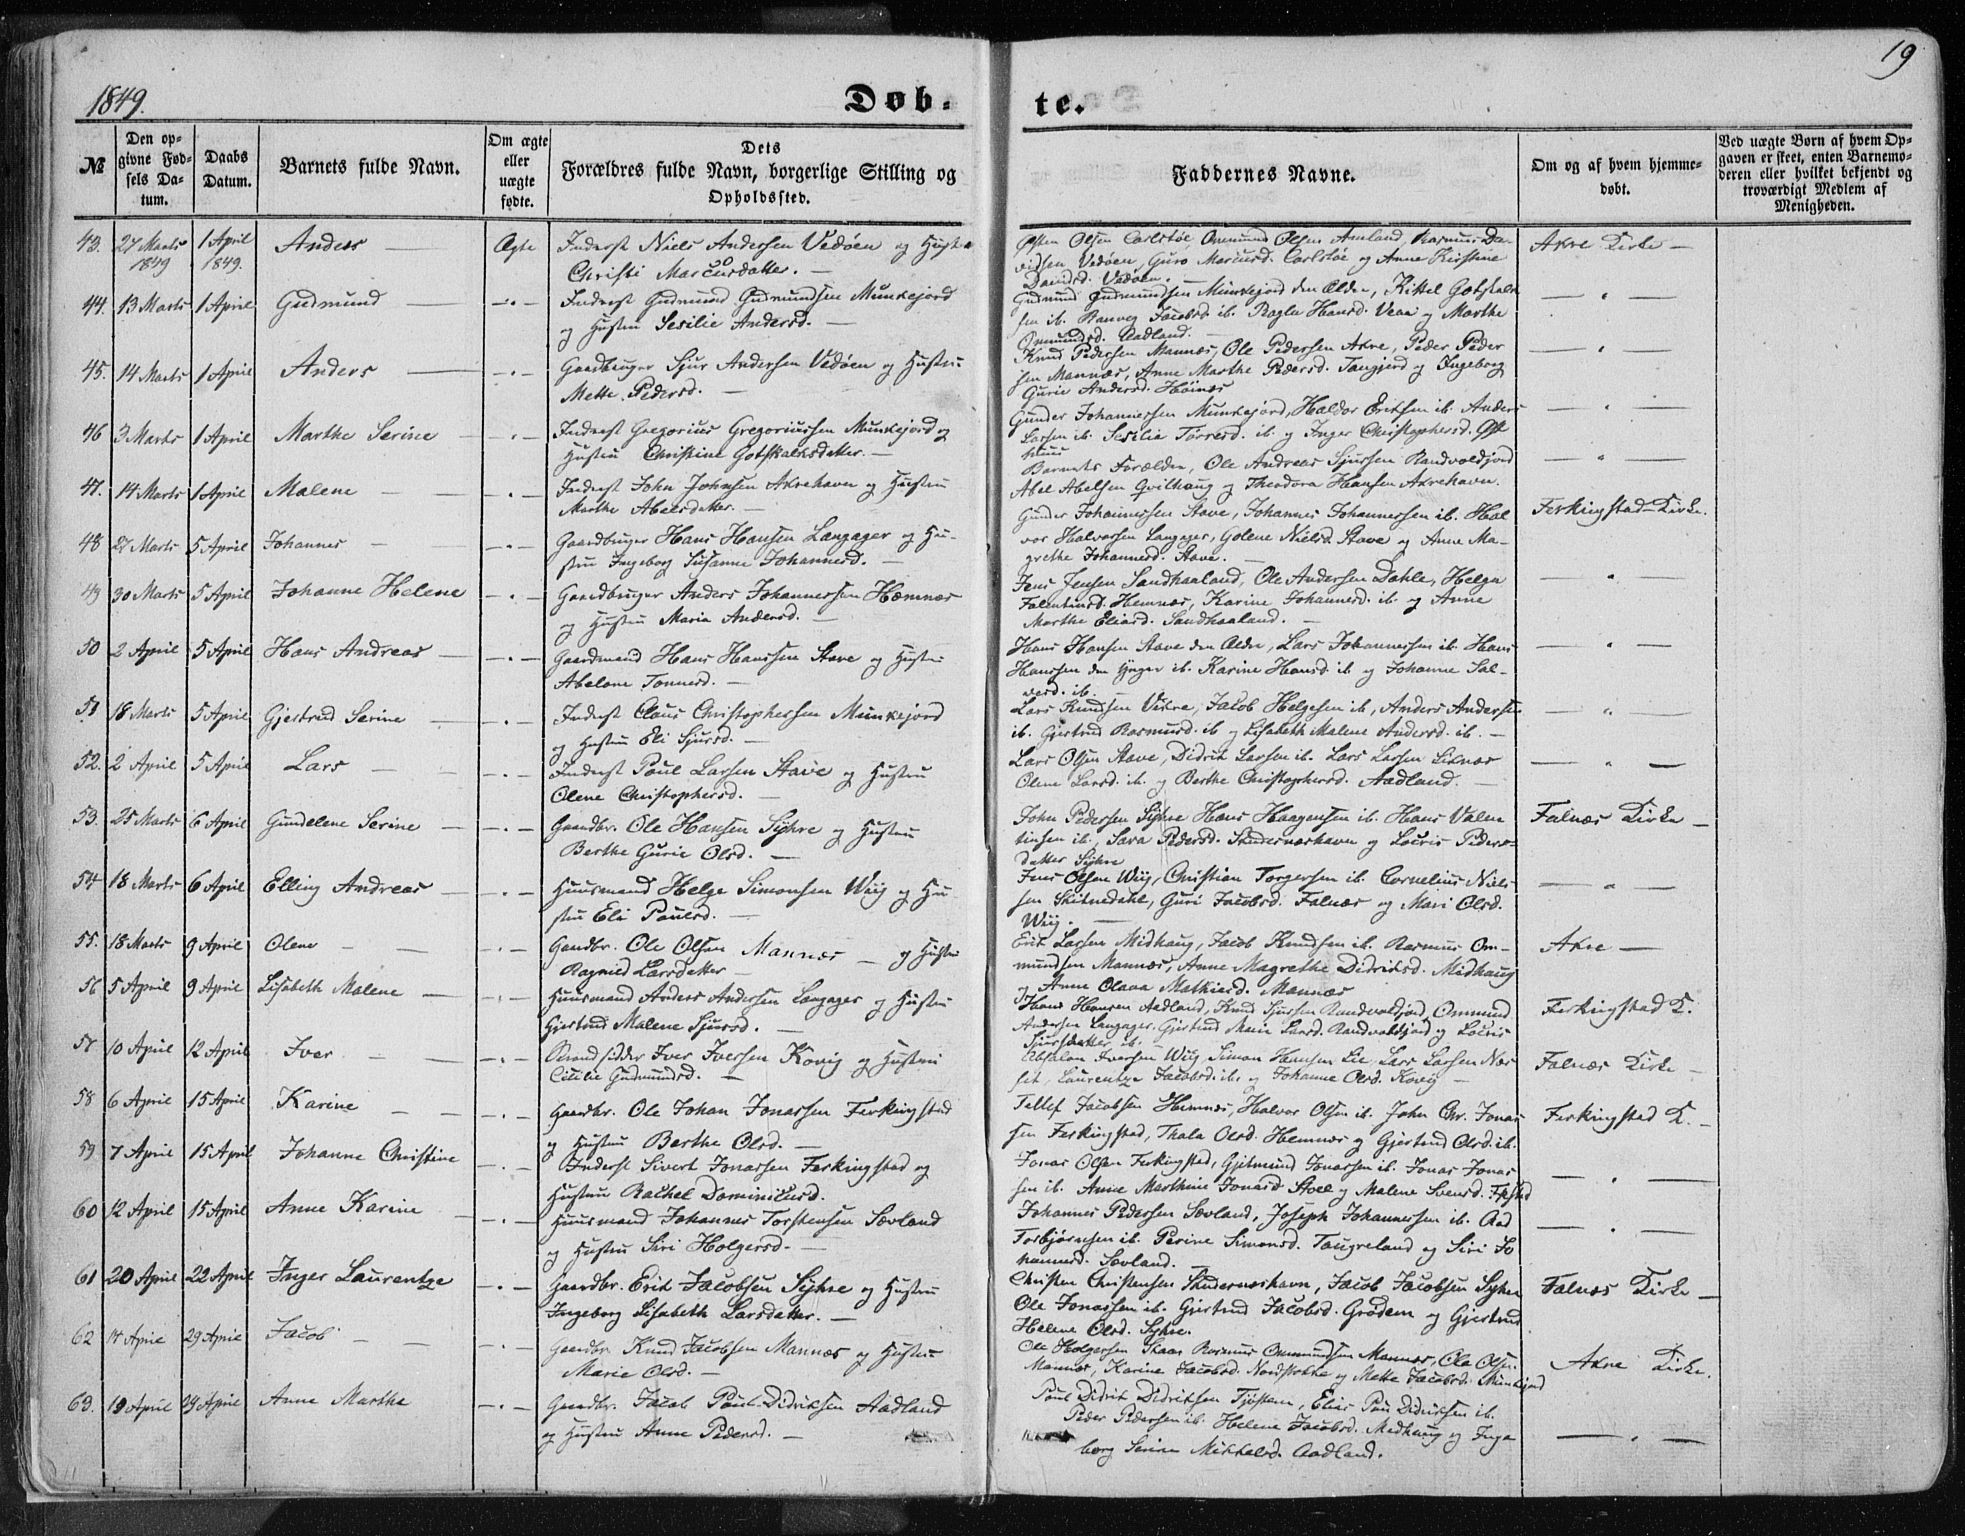 19
1849.
Døb-
te.
№
Den op-
givne Fød-
sels Da-
tum.
Daabs
Datum.
Barnets fulde Navn.
Om ægte
eller
uægte
fødte.
Dets
Forældres fulde Navn, borgerlige Stilling og
Opholdssted.
Faddernes Navne.
Om og af hvem hjemme-
døbt.
Ved uægte Børn af hvem Op-
gaven er skeet, enten Barnemo-
deren eller hvilket bekjendt og
troværdigt Medlem af
Menigheden.
43. 27 Marts 1849 1 April 1849. Anders — Ægte Inderst Niels Andersen Vedøen og Hustru
Christi Marcusdatter. —
Østen Olsen Carlstøe, Ommund Olsen Amland, Rasmus Da-
vidsen Vedøen, Guro Marcusd. Carlstøe og Anne Kirstine
Davidsd. Vedøen. —
Akre Kirke —
44. 13 Marts 1 April Gudmund — — Inderst Gudmund Gudmundsen Munkejord
og Hustru Sesilie Andersd. —
Gudmund Gudmundsen Munkejord den Ældre, Kittel Gotskalk
sen ib. Ranveg Jacobsd. ib. Ragla Hansd. Veaa og Marthe
Ommundsd. Aadland. —
— " —
45. 14 Marts 1 April Anders — — Gaardbruger Sjur Andersen Vedøen og Hustru
Mette Pedersd. —
Knud Pedersen Mannæs, Ole Pedersen Akre, Peder Peder
sen Mannæs, Anne Marthe Pedersd. Tangjerd og Ingeborg
Gurie Andersd. Høinæs
— " —
46 3 Marts 1 April Marthe Serine — — Inderst Gregorius Gregoriussen Munkejord og
Hustru Christine Gotskalksdatter. —
Gunder Johannessen Munkejord, Haldor Eritsen ib. Anders
Larsen ib. Sesilia Torresd. ib. og Inger Christophersd. Øst
huus
— " —
47. 14 Marts 1 April Malene — — Inderst John Johnsen Akrehavn og Hustru
Marthe Abelsdatter. —
Barnets Forældre, Ole Andreas Sjursen Randvoldjord
Abel Abelsen Qvilhaug og Theodora Hansen Akrehavn.
— " —
48 27 Marts 5 April Johannes — — Gaardbruger Hans Hansen Langager og Hu-
stru Ingeborg Susanne Johannesd. —
Gunder Johannessen Stave, Johannes Johannessen ib. Hal
vor Halvorsen Langager, Golene Nielsd. Stave og Anne Ma-
grethe Johannesd. Stave. —
Ferkingstad Kirke.
49 30 Marts 5 April Johanne Helene — — Gaardbruger Anders Johannessen Hæmnæs
og Hustru Maria Andersd. —
Jens Jensen Sandhaaland, Ole Andersen Dahle, Helga
Falentinsd. Hemnæs, Karine Johannesd. ib. og Anne
Marthe Eliasd. Sandhaaland. —
— " —
50 2 April 5 April Hans Andreas — — Gaardmand Hans Hanssen Stave og Hustru
Abelone Tonnesd. —
Hans Hansen Stave den Ældre, Lars Johannessen ib. Hans
Hanssen den yngre ib. Karine Hansd. ib. og Johanne Sal-
vesd. ib. —
— " —
51 18 Marts 5 April Gjertrud Serine — — Inderst Claus Christophersen Munkejord
og Hustru Eli Sjursd. —
Lars Knudsen Vikre, Jacob Helgesen ib, Anders Andersen
ib. Gjertrud Rasmusd. ib og Lisabeth Malene Andersd. ib. —
— " —
52. 2 April 5 April Lars — — Inderst Poul Larsen Stave og Hustru
Olene Christophersd. —
Lars Olsen Stave, Didrik Larsen ib. Lars Larsen Liknæs
Olene Larsd. ib. og Berthe Christophersd. Aadland. —
— " —
53. 25 Marts 6 April Gundelene Serine — — Gaardbr. Ole Hansen Syhre og Hustru
Berthe Gurie Olsd. —
John Pedersen Syhre Hans Haagensen ib. Hans Valen
tinsen ib, Sara Pedersd. Skudesnæshavn og Lovris Peders-
datter Syhre
Falnæs Kirke —
54 18 Marts 6 April Elling Andreas — — Huusmand Helge Simonsen Wiig og Hu-
stru Eli Poulsd. —
Jens Olsen Wiig, Christian Torgersen ib. Cornelius Niels
sen Skitnedahl, Guri Jacobsd. Falnæs og Mari Olsd.
Wiig. —
— " —
55. 18 Marts 9 April Olene — — Gaardbr. Ole Olsen Mannæs — og Hustru
Ragnild Larsdatter —
Erik Larsen Midhaug, Jacob Knudsen ib. Rasmus Om-
mundsen Mannæs, Anne Magrethe Didriksd. Midhaug
og Anne Olava Mathiesd. Mannæs
Akre —
56 5 April 9 April Lisabeth Malene — — Huusmand Anders Andersen Langager og Hustru
Gjertrud Malene Sjursd. —
Hans Hansen Aadland, Knud Sjursen Randvoldjord, Ommund
Andersen Langager. Gjertrud Marie Larsd. Randvoldjord og Lovris
Sjursdatter ib.
Ferkingstad K.
57 10 April 12 April Iver — — Strandsidder Iver Iversen Kovig og Hustru
Cicilie Gudmundsd. —
Absalon Iversen Wiig Simon Hansen Lie, Lars Larsen Nor
set, Laurentze Jacobsd. ib. og Johanne Olsd. Kovig —
Falnæs Kirke —
58 6 April 15 April Karine — — Gaardbr. Ole Johan Jonassen Ferkingstad
og Hustru Berthe Olsd. —
Tellef Jacobsen Hemnæs, Halvor Olsen ib. John Chr. Jonas
sen Ferkingstad, Thala Olsd. Hemnæs og Gjertrud Olsd. ib.
Ferkingstad K. —
59 7 April 15 April Johanne Christine — — Inderst Sivert Jonassen Ferkingstad og
Hustru Rachel Dominicusd.
Jonas Olsen Ferkingstad, Gjetmund Jonassen ib. Jonas Jonas
sen ib. Anne Marthine Jonasd. Stoel og Malene Svensd. Fkstad
— " —
60 12 April 15 April Anne Karine — — Huusmand Johannes Torstensen Sævland
og Hustru Siri Holgersd. —
Johannes Pedersen Sævland, Joseph Johannessen ib. Aad
Torbjørnsen ib. Perine Simonsd. Taugreland og Siri Jo
hannesd. Sævland. —
— " —
61 20 April 22 April Inger Laurentze — — Gaardbr. Erik Jacobsen Syhre og Hustru
Ingeborg Lisabeth Larsdatter. —
Christen Christensen Skudesnæshavn, Jacob Jacobsen Syhre
Ole Jonassen ib. Gjertrud Jacobsd. Grødem og Gjertrud
Helene Olsd. Syhre.
Falnæs Kirke —
62 14 April 29 April Jacob — — Gaardbr. Knud Jacobsen Mannæs og Hustru
Marie Olsd. —
Ole Holgersen Skaar Rasmus Ommundsen Mannæs, Ole Olsen
Mannæs, Karine Jacobsd. Nordstokke og Mette Jacobsd. Munkejord
Akre Kirke.
63. 19 April 29 April Anne Marthe — Gaardbr. Jacob Poul Didriksen Aadland
og Hustru Anne Pedersd. —
Poul Didrik Didriksen Tjøsteim, Elias Poul Didriksen ib.
Peder Pedersen ib. Helene Jacobsd. Medhaug og Inge
borg Serine Mikkelsd. Aadland.
— " —